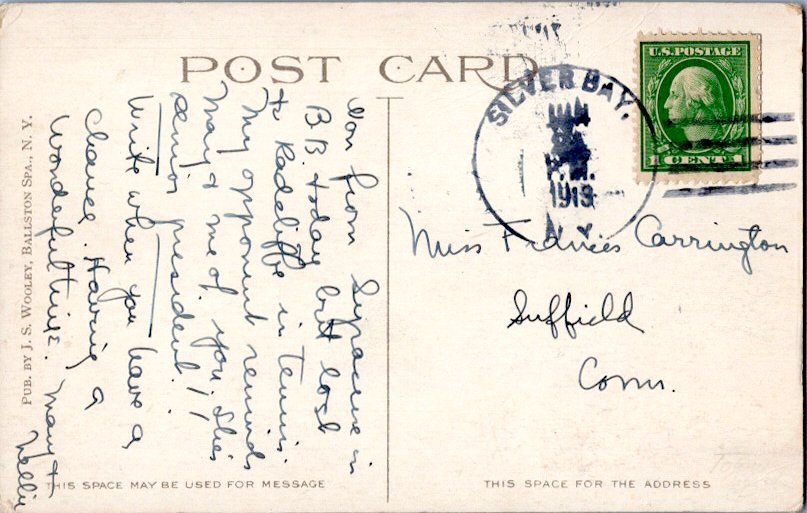 POST CARD
U.S. POSTAGE
1 CENT 1
SILVER BAY.
P.M.
1913
N.Y.
Won from Syracuse in
B.B. today but lost
to Radcliffe in tennis.
My opponent reminds
May & me of you. She's
senior president!!
Write when you have a
chance. Having a
wonderful time.
Mary &
Nellie
Miss Frances Carrington
Suffield
Conn.
PUB. BY J. S. WOOLEY, BALLSTON SPA., N. Y.
THIS SPACE MAY BE USED FOR MESSAGE
THIS SPACE FOR THE ADDRESS